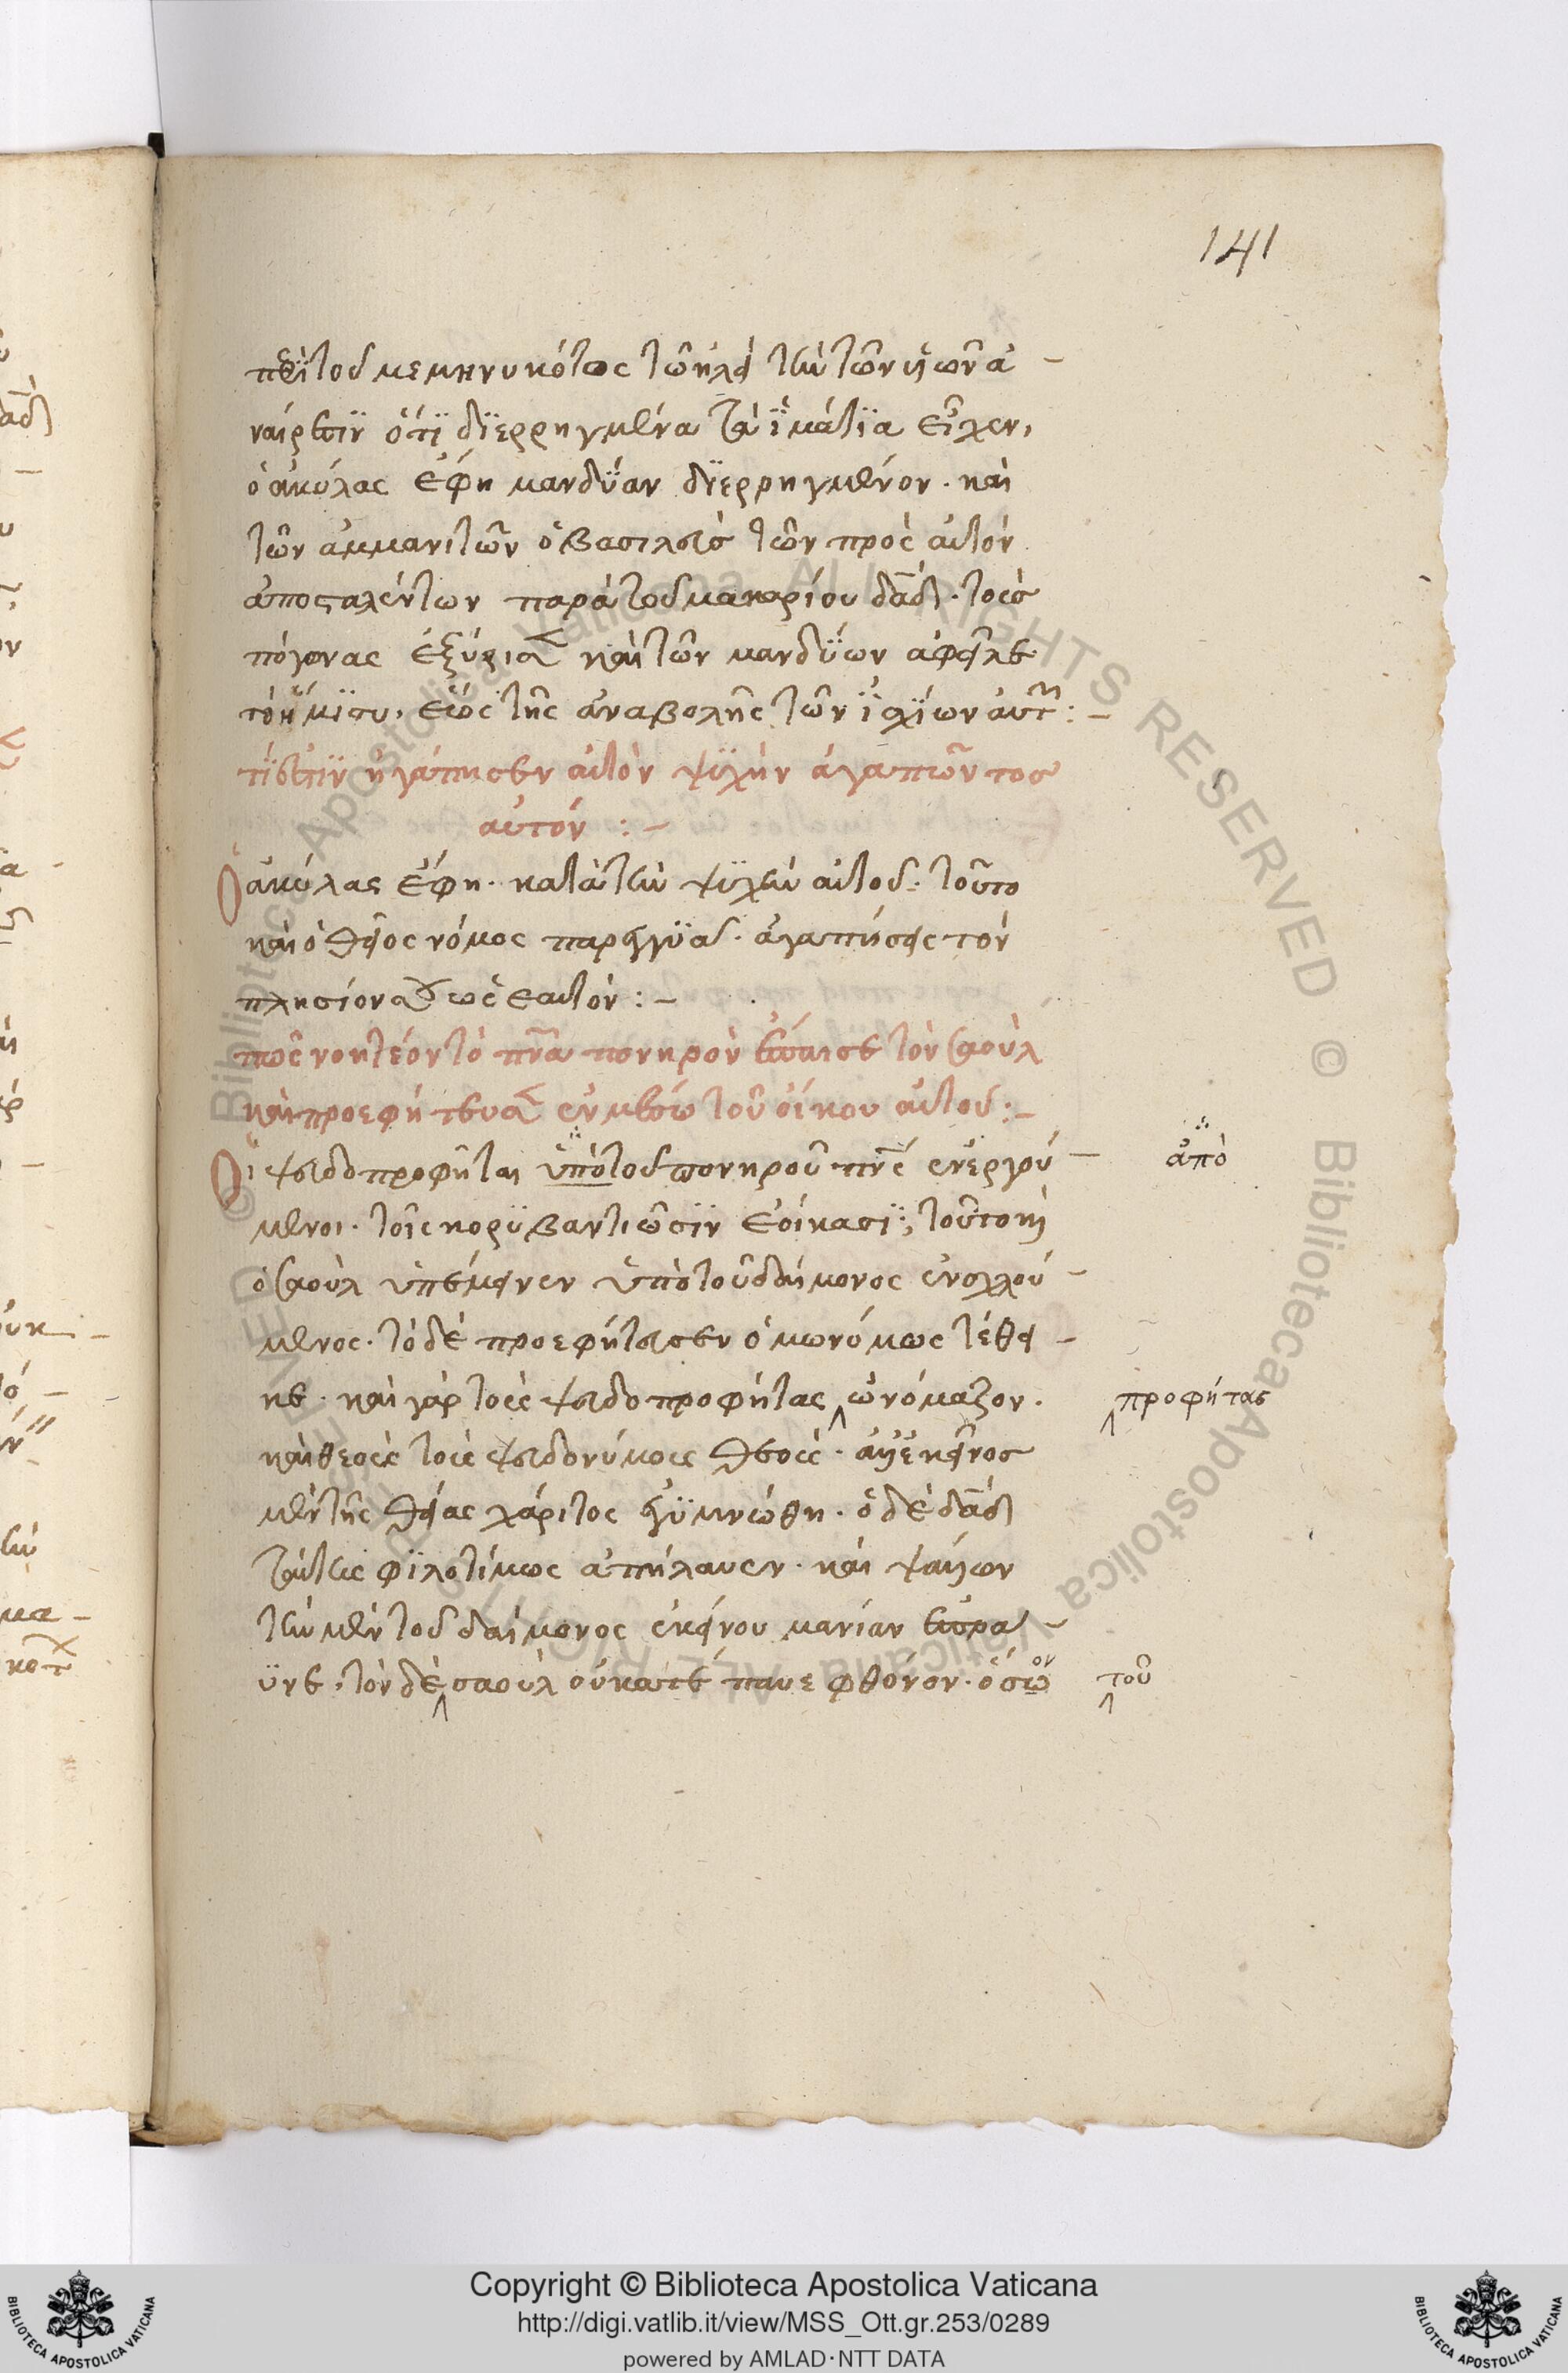 141
περὶ τοῦ μεμηνυκότος τῶ ἠλεὶ τὴν τῶν ϋἱῶν ἀ –
ναίρεσιν ὅτι διερρηγμένα τὰ ἱμάτια εἶχεν,
ὁ ἀκύλας ἔφη μανδύαν διερρηγμένον. καὶ
τῶν ἀμμανιτῶν ὁ βασιλεὺς τῶν πρὸς αὐτὸν
ἀποσταλέντων παρὰ τοῦ μακαρίου δᾱδ. τοὺς
πόγωνας ἐξύρισε καὶ τῶν μανδύων ἀφεῖλε
τὸ ἥμισυ, ἕως τῆς ἀναβολῆς τῶν ἰσχίων αὐτῶν : –
τί ἐστιν ἠγάπησεν αὐτὸν ψυχὴν ἀγαπῶντος
αὐτόν : –
Ὁ ἀκύλας ἔφη. κατὰ τὴν ψυχὴν αὐτοῦ. τοῦτο
καὶ ὁ θεῖος νόμος παρεγγυᾶ. ἀγαπήσεις τὸν
πλησίον σου ὡς ἑαυτόν : –
πῶς νοητέον τὸ πν̅α πονηρὸν ἔπαισε τὸν σαοὺλ
καὶ προεφήτευσεν ἐν μέσω τοῦ οἴκου αὐτοῦ : –
Οἱ ψευδοπροφῆται ὑπὸ τοῦ πονηροῦ πν̅ς ἐνεργού –
μενοι. τοῖς κορυβαντιῶσιν ἐοίκασι, τοῦτο καὶ
ὁ σαοὺλ ὑπέμεινεν ὑπὸ τοῦ δαίμονος ἐνοχλού –
μενος. τὸ δὲ προεφήτευσεν ὁμωνύμως τέθει –
κε. καὶ γὰρ τοὺς ψευδοπροφήτας ὠνόμαζον.
καὶ θεοὺς τοὺς ψευδονύμους θεούς. ἀλλ' ἐκεῖνος
μὲν τῆς θείας χάριτος ἐγυμνώθη. ὁ δὲ δᾱδ
ταύτης φιλοτίμως ἀπήλαυεν. καὶ ψάλλων
τὴν μὲν τοῦ δαίμονος ἐκείνου μανίαν ἐπρα –
ϋνε, τὸν δὲ σαοὺλ οὐκ ἀπέπαυε φθόνον. ὅσω
ἀπὸ
προφήτας
τοῦ
Copyright © Biblioteca Apostolica Vaticana
http://digi.vatlib.it/view/MSS_Ott.gr.253/0289
powered by AMLAD·NTT DATA